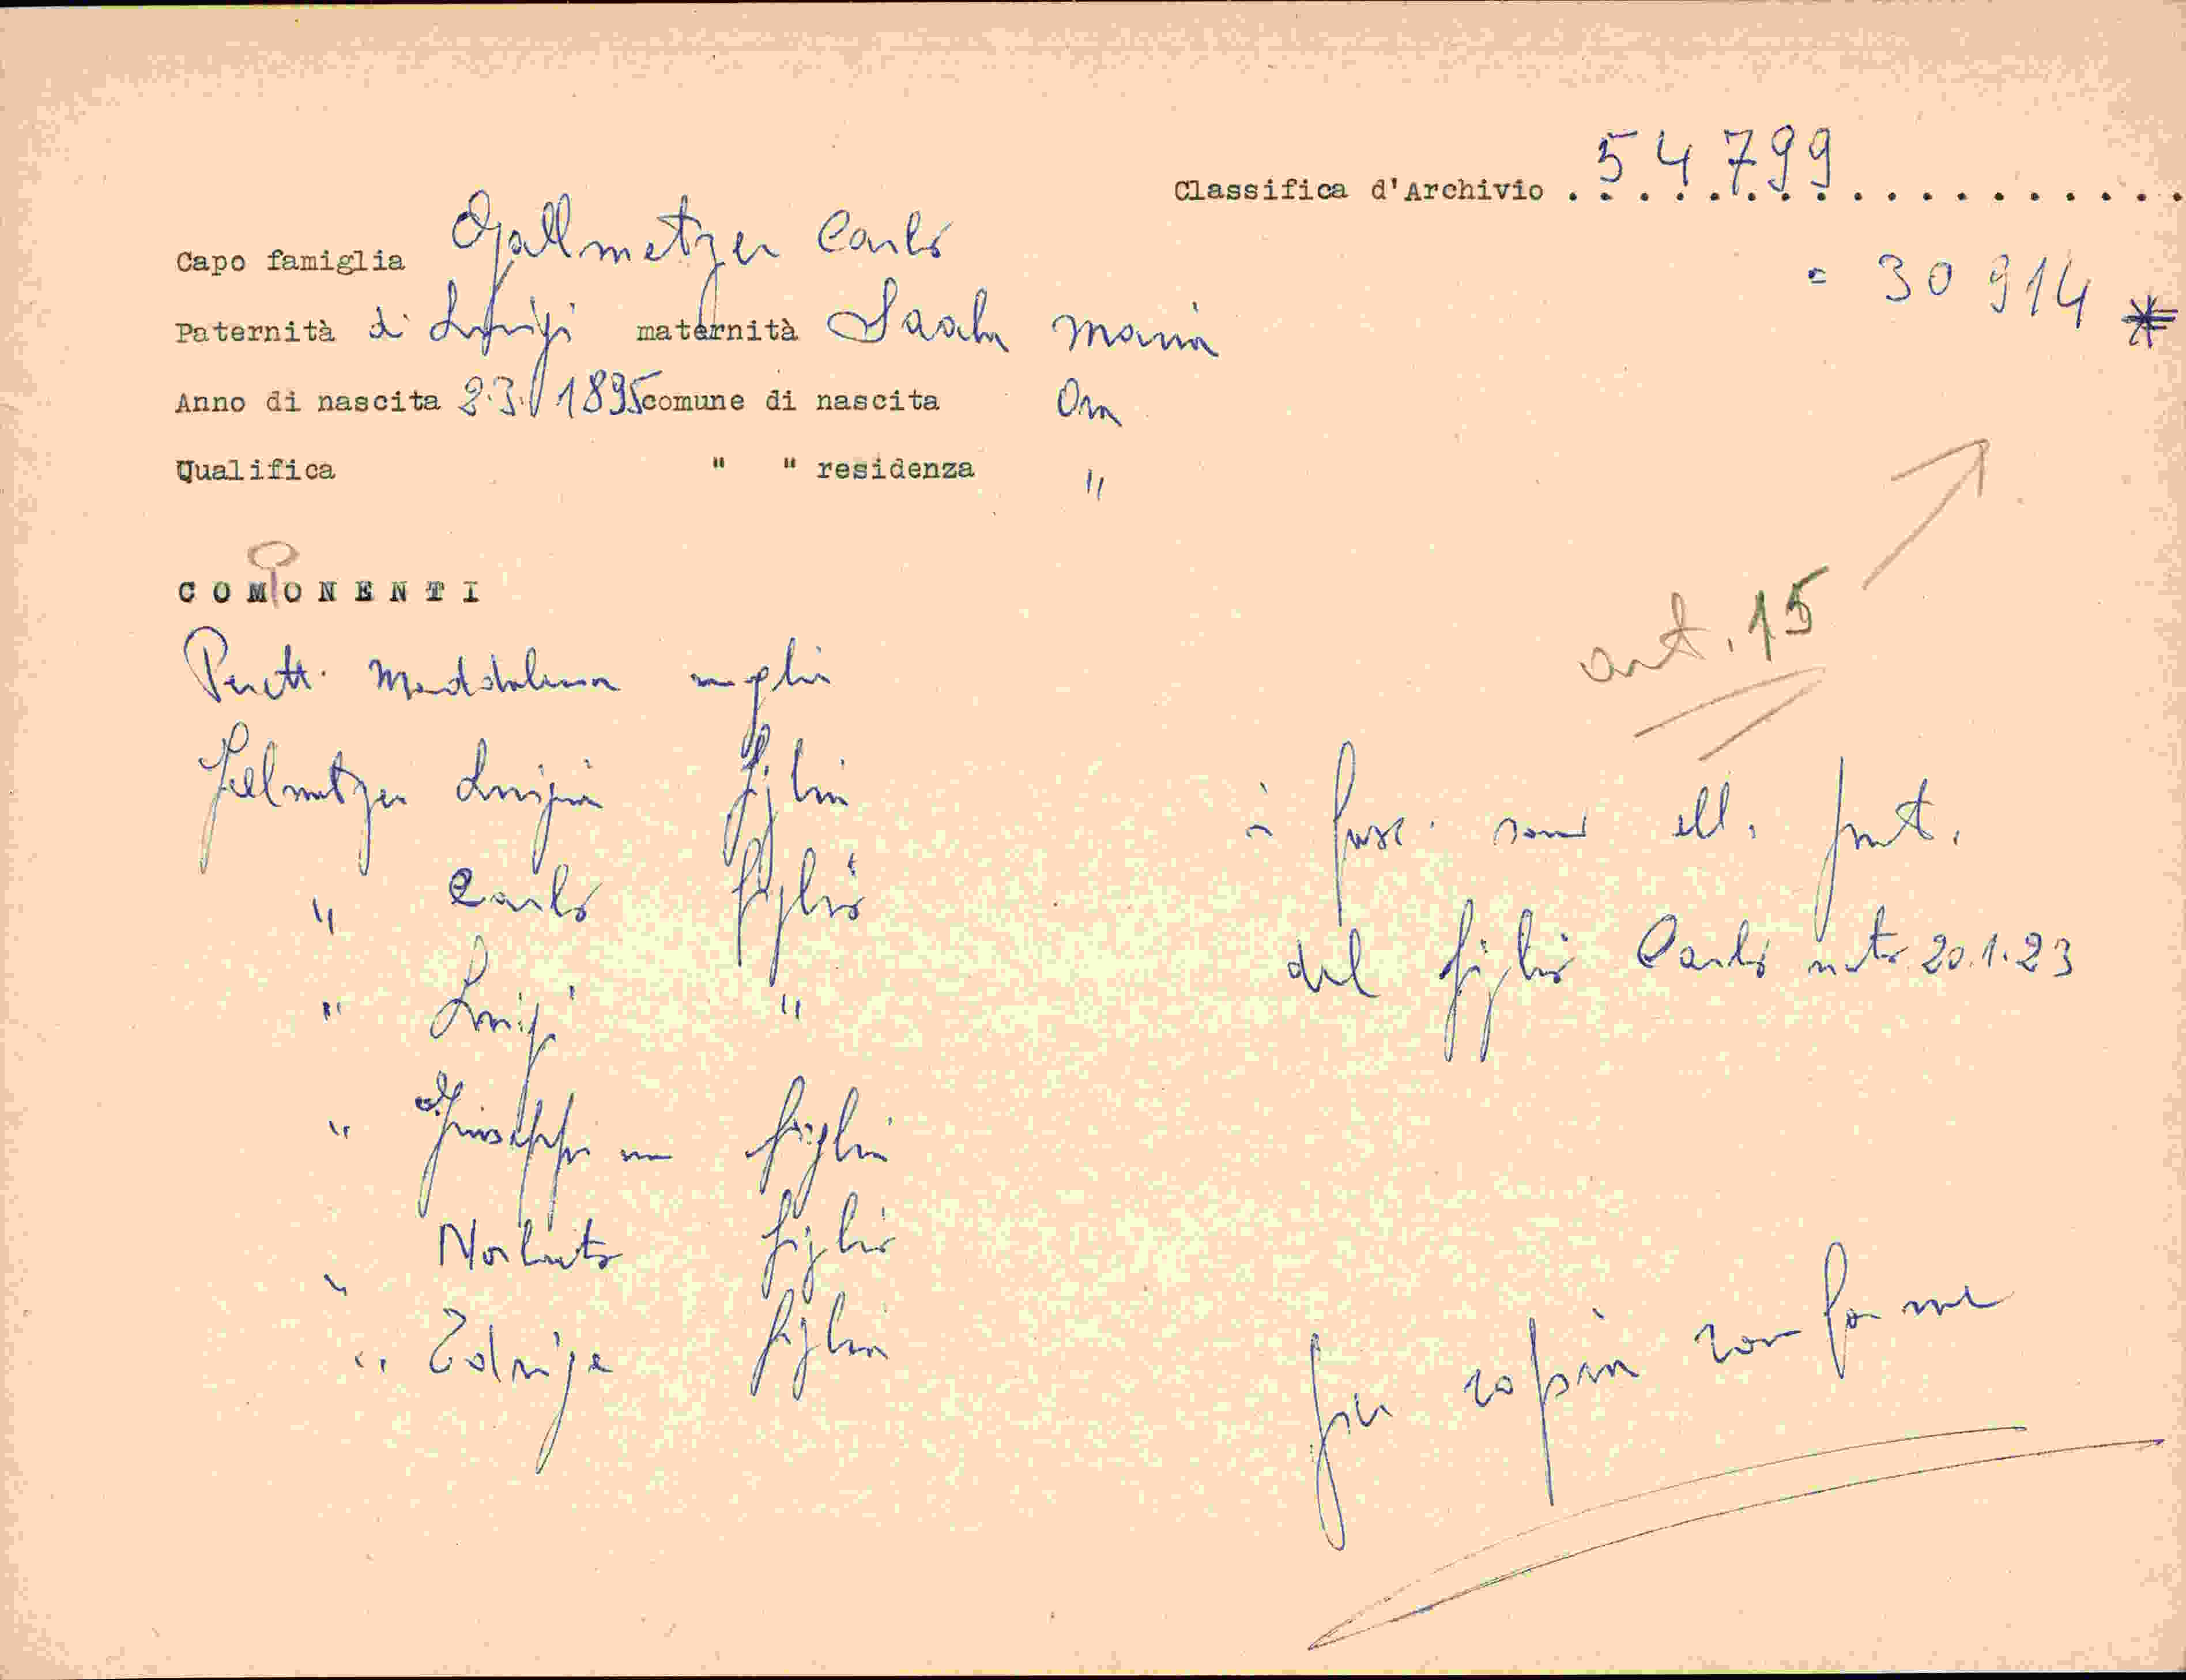 Classifica d'Archivio . 54799 . . . . . . . . . .
= 30 914 *
Capo famiglia Gallmetzer Carlo
Paternità di Luigi maternità Saah Maria
Anno di nascita 2.3.1895 comune di nascita Ora
Qualifica " " residenza "
COMONENTI
art. 15
Maddalena moglie
Gallmetzer Luigia figlia
" Carlo figlio
" Luigi "
" Giuseppina figlia
" Norberto figlio
" Edvige figlia
fasc. sono all.
del figlio Carlo nato 20.1.23
per copia conforme